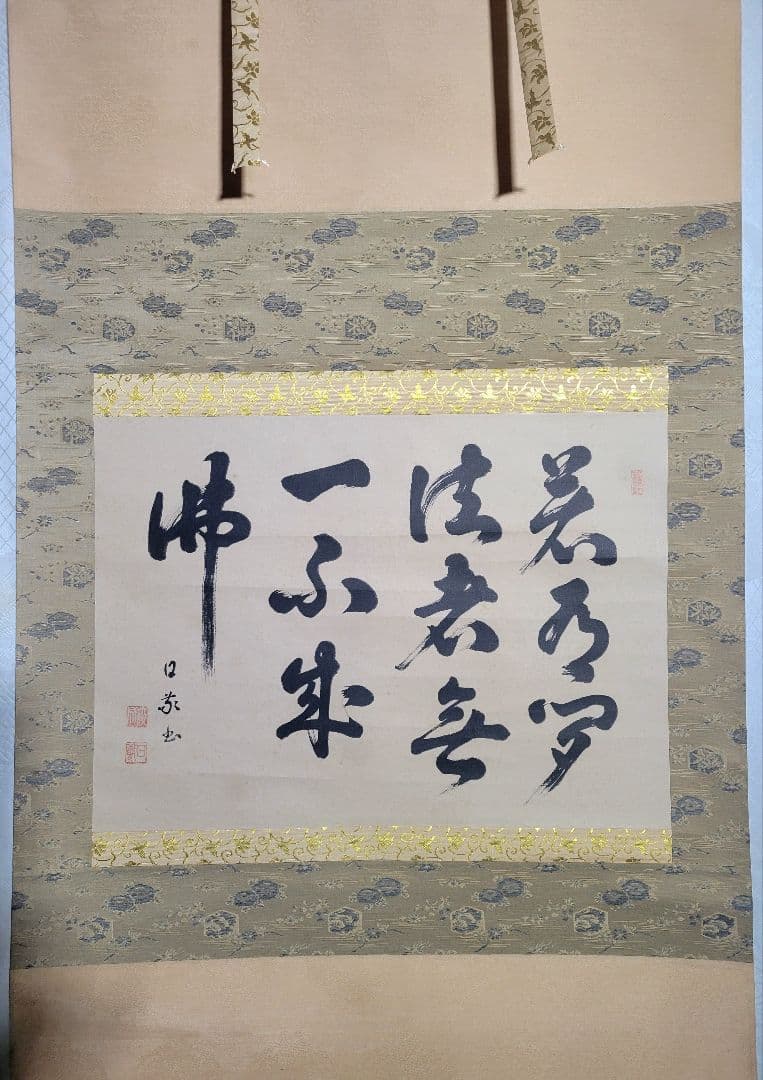 若有聞
法者無
一不成
佛
日敬書